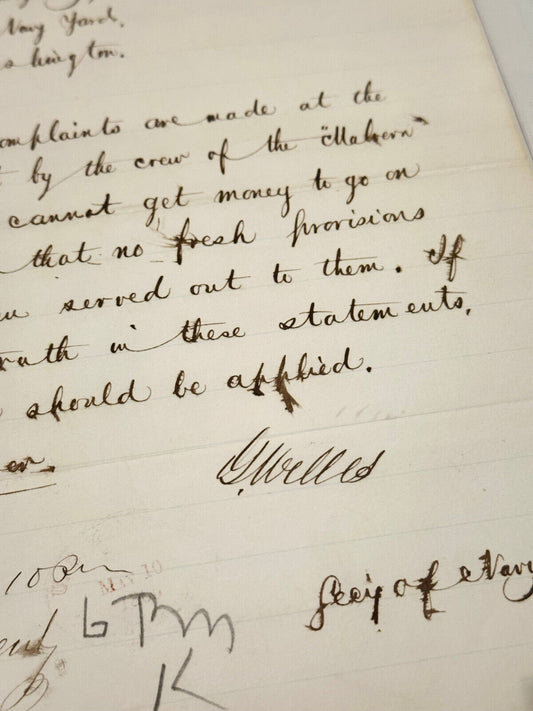 Navy Yard,
shington.
omplaints are made at the
by the crew of the "Malvern"
cannot get money to go on
that no fresh provisions
served out to them. If
ruth in these statements,
should be applied.
er.
G Welles
10
MAY 10
Secy of Navy
6 Pm
K